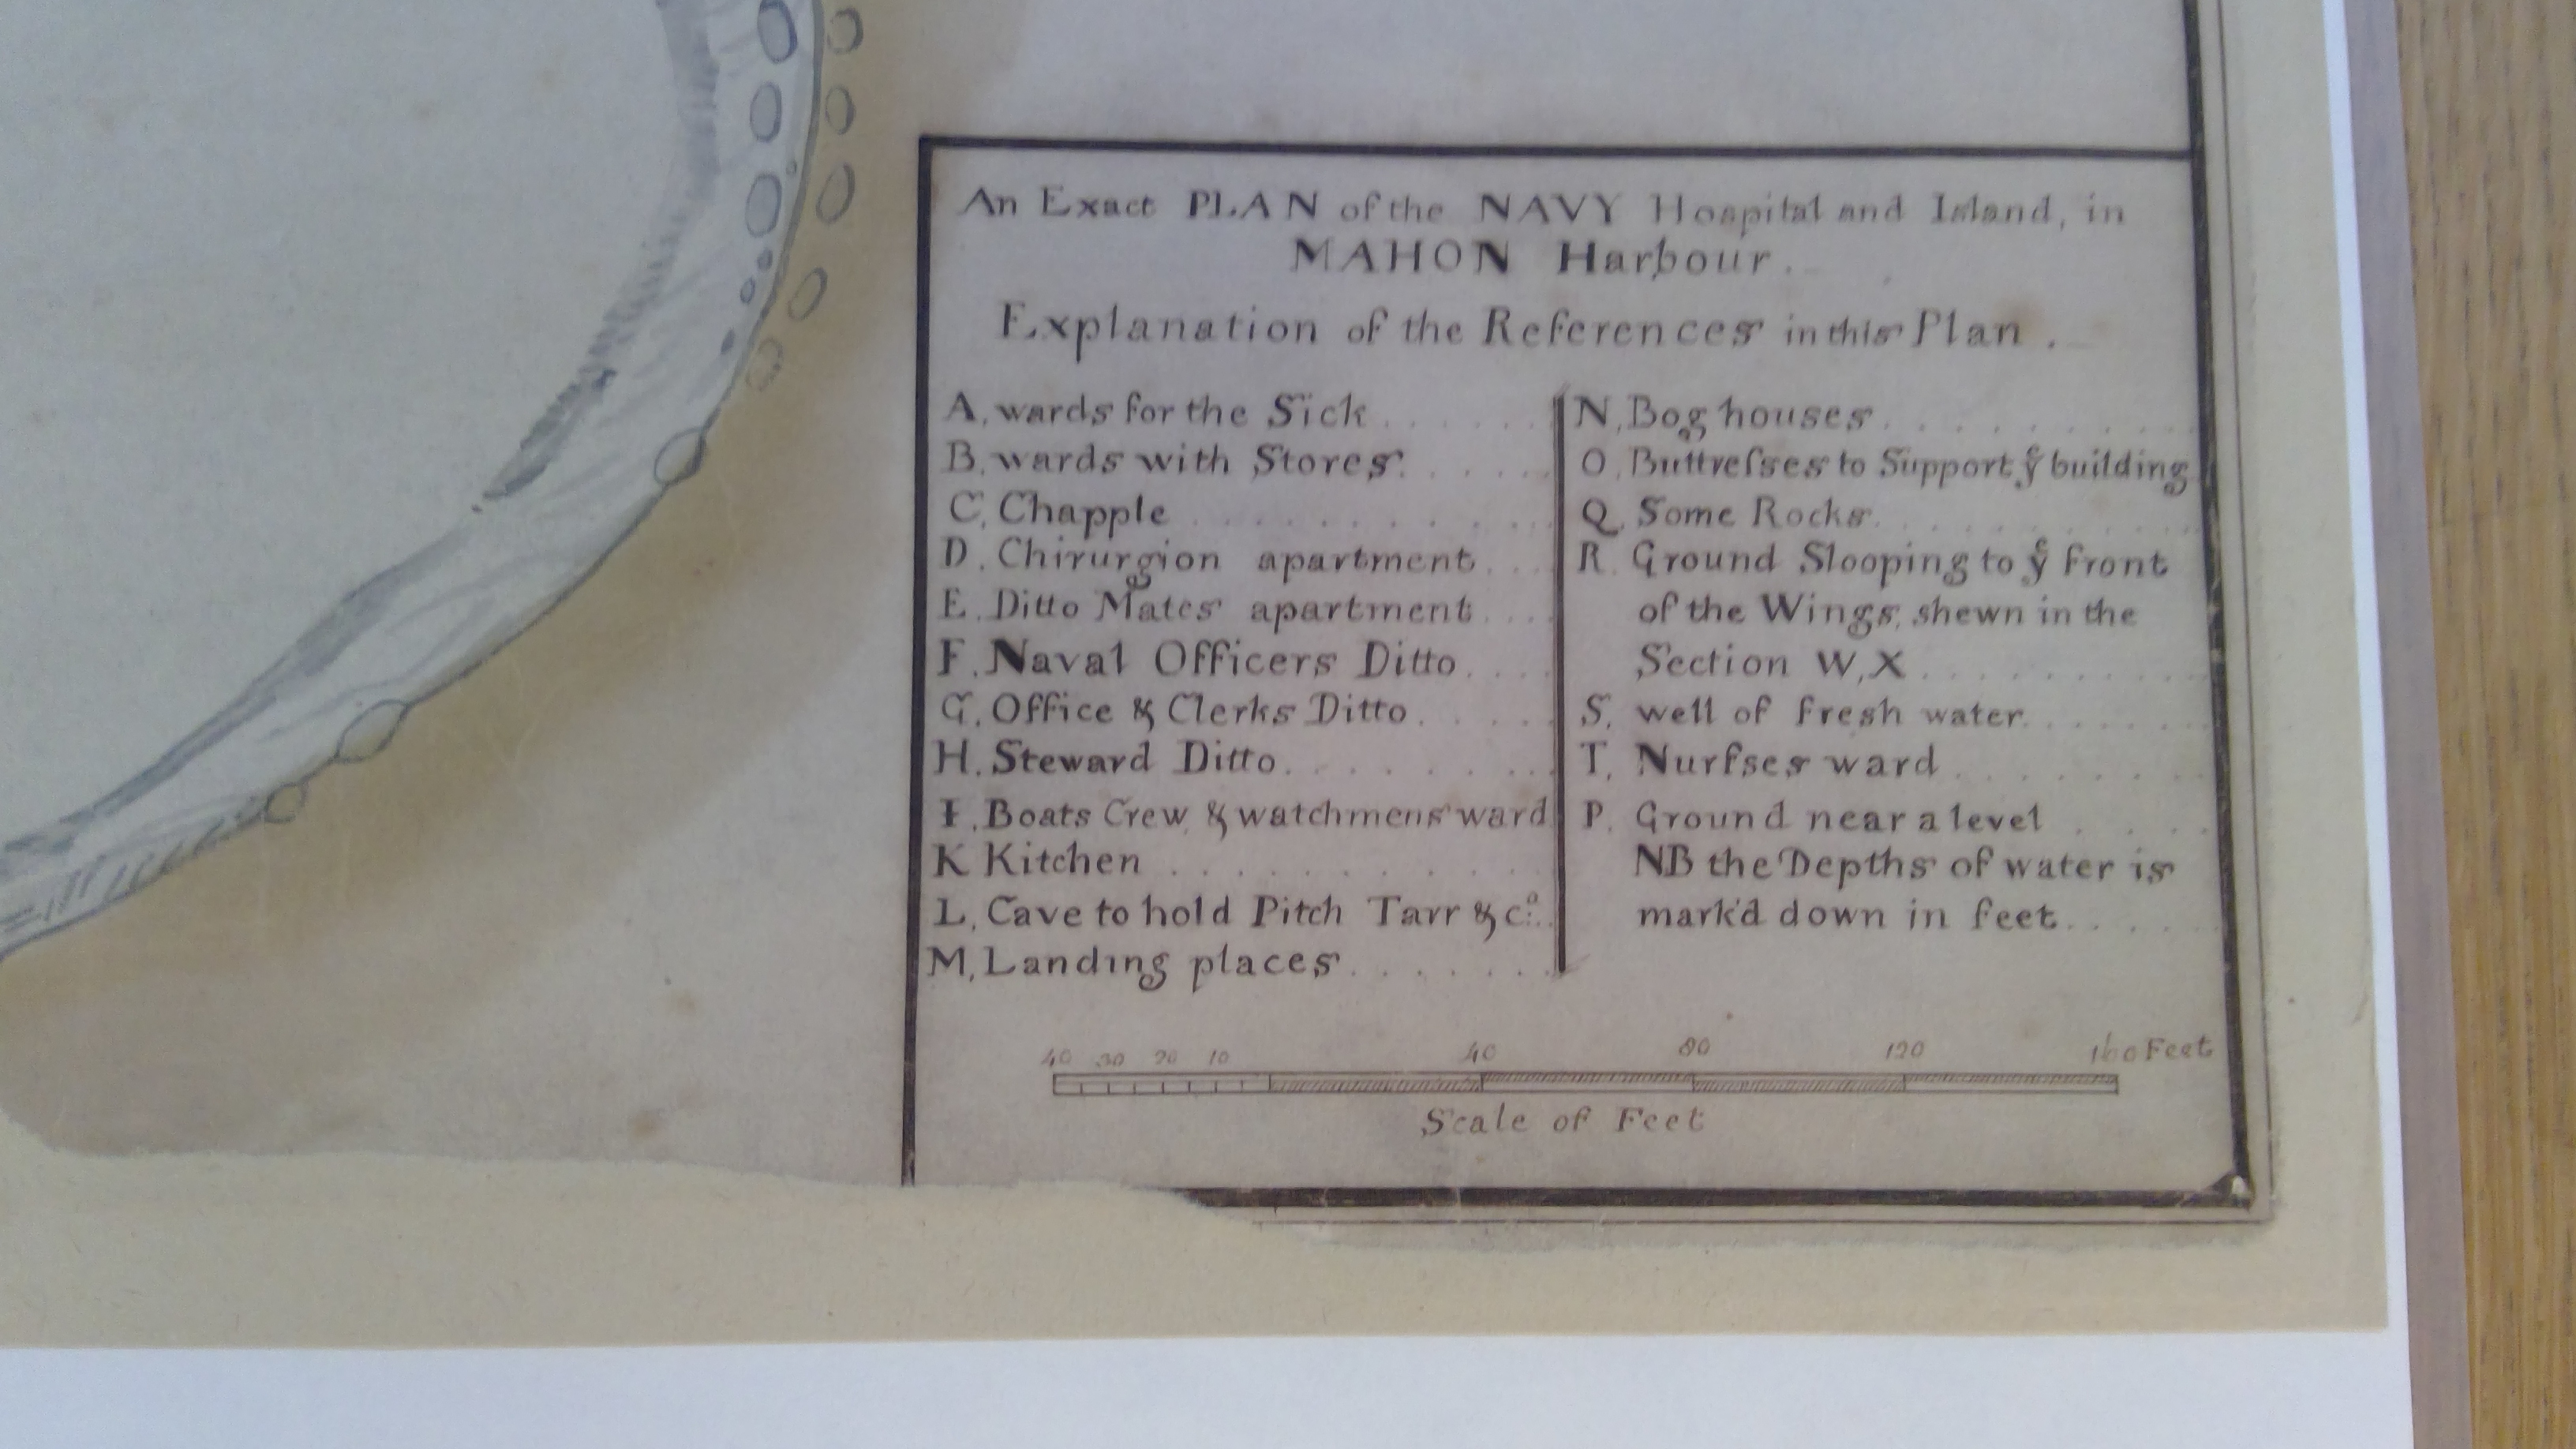 An Exact PLAN of the NAVY Hospital and Island, in
MAHON Harbour.
Explanation of the References in this Plan.
A, wards for the Sick
B, wards with Stores
C, Chapple
D, Chirurgion apartment
E, Ditto Mates apartment
F, Naval Officers Ditto
G, Office & Clerks Ditto
H, Steward Ditto
I, Boats Crew, & watchmens ward
K Kitchen
L, Cave to hold Pitch Tarr & cª.
M, Landing places
N, Bog houses
O, Buttreſses to Support yͤ building
Q, Some Rocks
R. Ground Slooping to yͤ front
of the Wings, shewn in the
Section W, X
S, well of fresh water
T, Nurſses ward
P. Ground near a level
NB the Depths of water is
mark'd down in feet
40 30 20 10 40 80 120 160 Feet
Scale of Feet